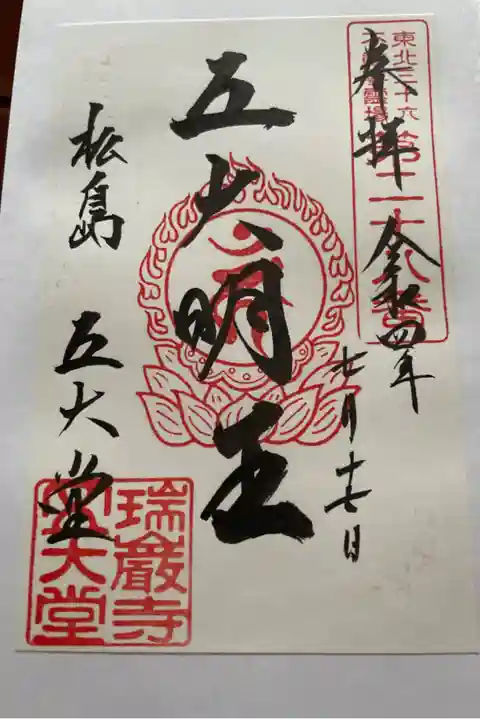 奉拝
令和四年
七月十七日
五大明王
松島 五大堂
東北三十六
不動尊霊場
第二十八番
瑞巌寺
五大堂